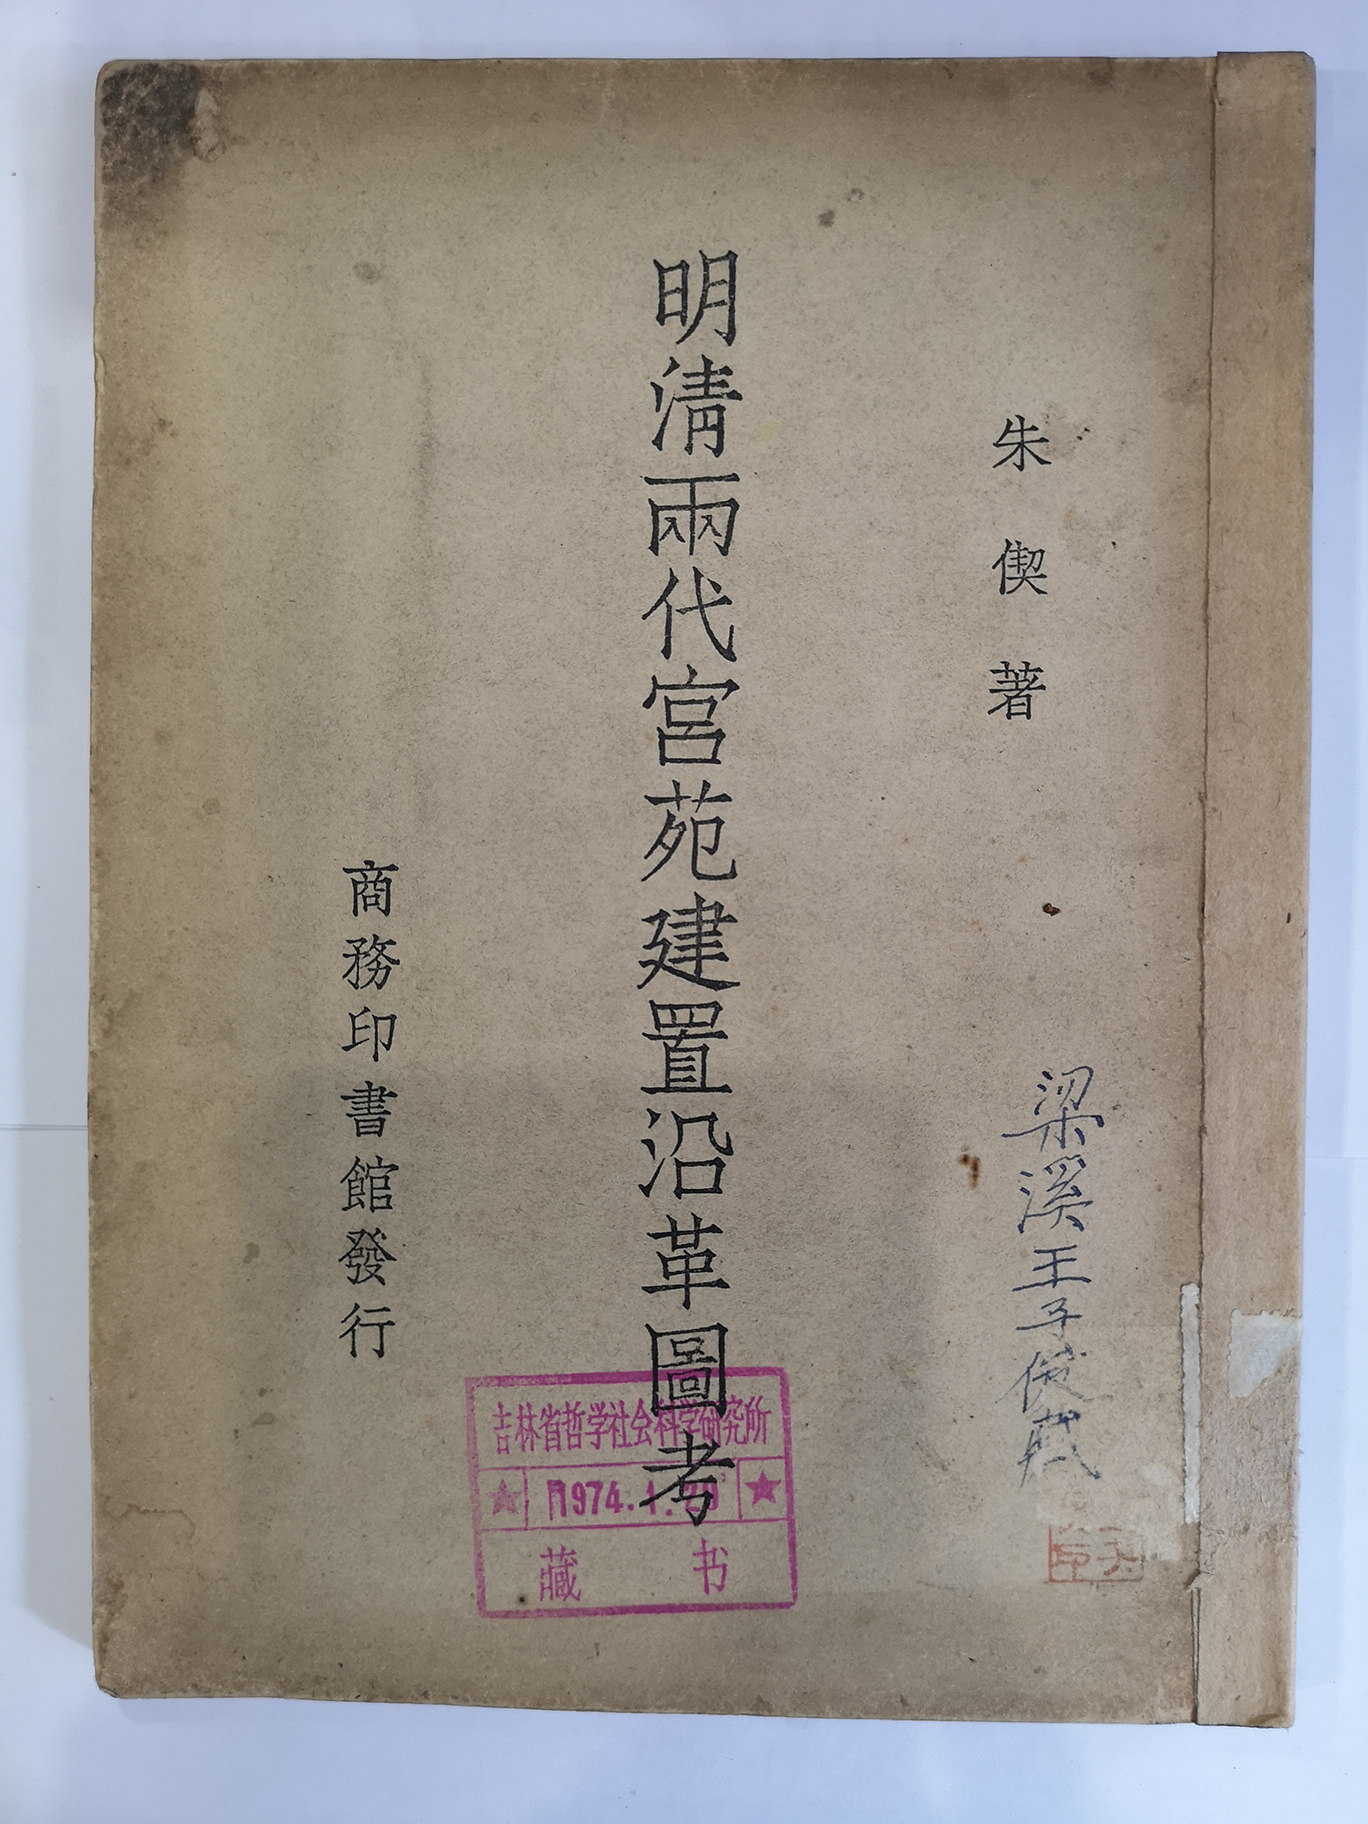 朱偰著
明清兩代宮苑建置沿革圖考
商務印書館發行
梁溪王子俊藏
吉林省哲学社会科学研究所
1974.1.29
藏书